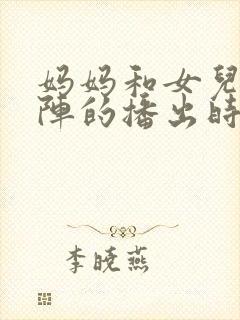 妈妈和女兒
陣的播出時
李曉燕